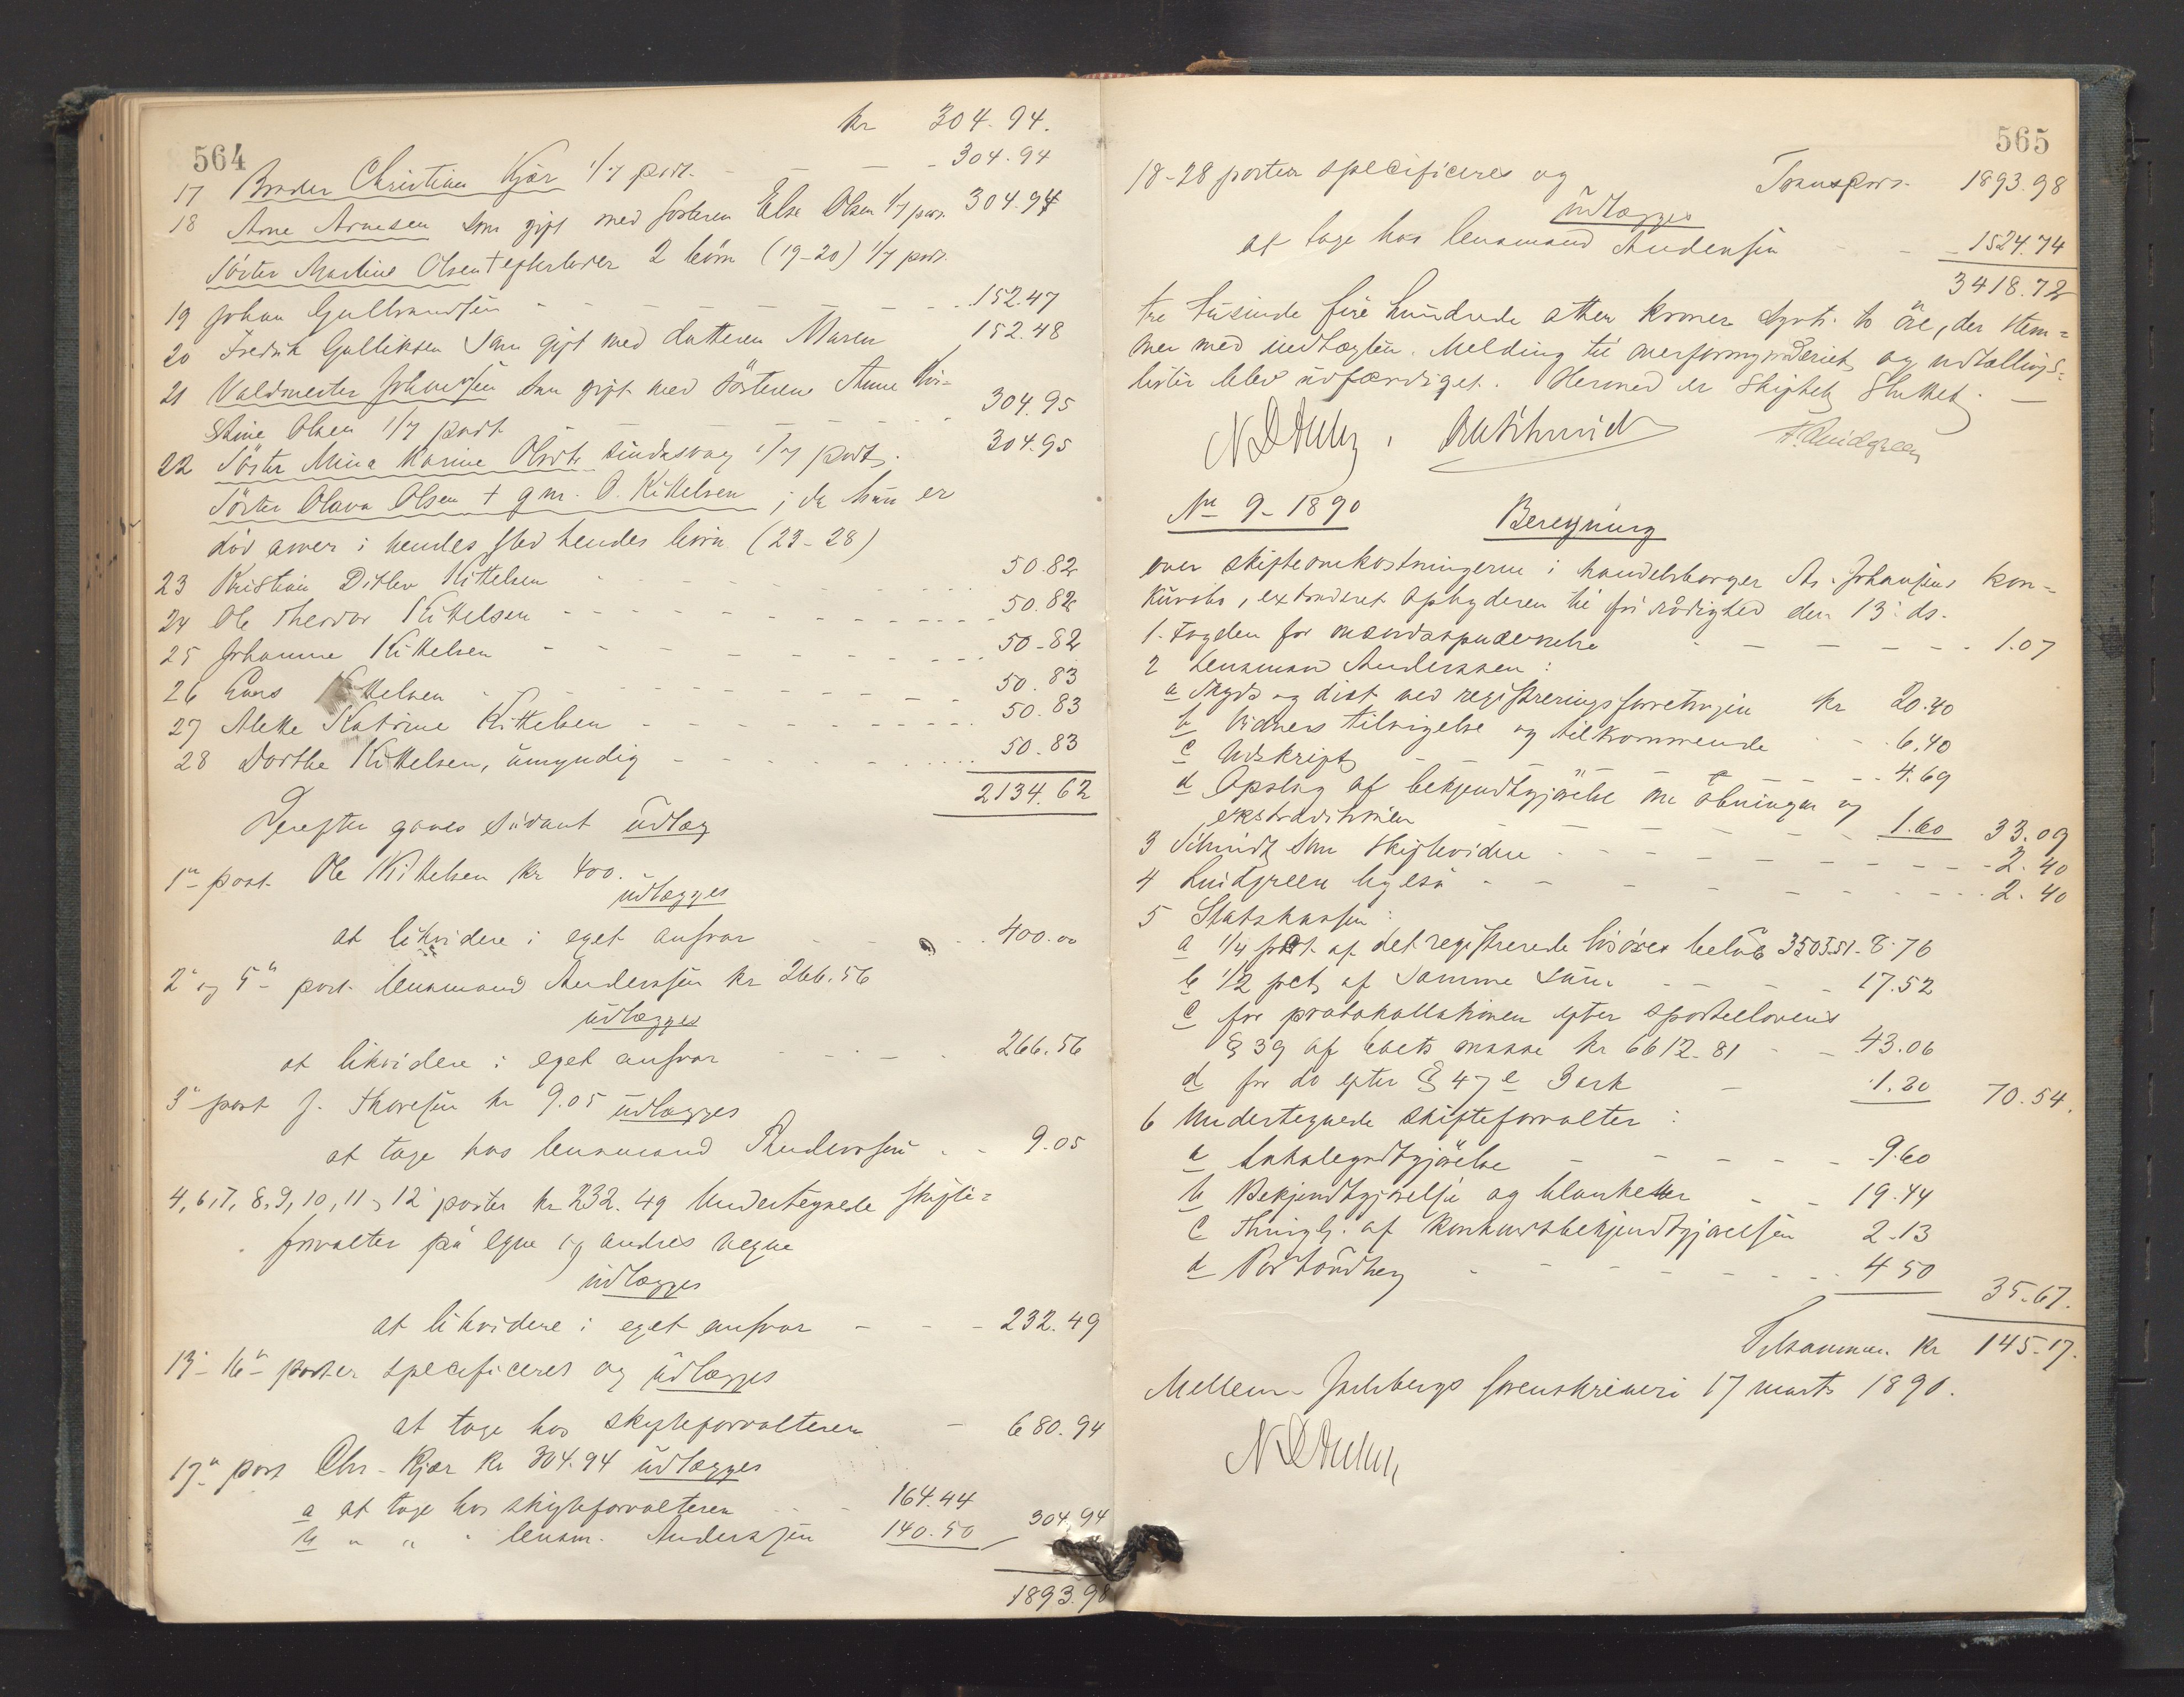 564
kr 304.94.
17 Broder Christian Kjær 1/7 part. - - - 304.94
18 Arne Arnesen som gift med søsteren Else Olsen 1/7 part. 304.94
Söster Martine Olsen † efterlader 2 børn (19-20) 1/7 part.
19 Johan Gulbrandsen - - - - - 152.47
20 Fredrik Gulliksen som gift med datteren Maren 152.48
21 Valdmester Johansen som gift med søsteren Anne Kri=
stine Olsen 1/7 part - - - 304.95
22 Söster Mina Karine Olsdtr sindssvag 1/7 part. 304.95
Söster Olava Olsen † gm. O. Kittelsen; da hun er
död arver i hendes sted hendes börn (23-28)
23 Kristian Ditlev Kittelsen - - - 50.82
24 Ole Theodor Kittelsen - - - 50.82
25 Johanne Kittelsen - - - 50.82
26 Kittelsen - - - 50.83
27 Alette Katrine Kittelsen - - - 50.83
28 Dorthe Kittelsen, umyndig - - - 50.83
2134.62
Derefter gaves sådant udlæg
1n post Ole Kittelsen kr 400.
udlægges
at likvidere i eget ansvar - - 400.00
2n og 5n post lensmand Anderssen kr 266.56
udlægges
at likvidere i eget ansvar - - - 266.56
3n post J. Thoresen kr 9.05 udlægges
at tage hos lensmand Anderssen - - 9.05
4, 6, 7, 8, 9, 10, 11, 12 poster kr 232.49 Undertegnede skifte=
forvalter på egne og andres vegne
udlægges
at likvidere i eget ansvar - - - 232.49
13-16n poster specificeret og udlægges
at tage hos skifteforvalteren - 680.94
17n post Chr. Kjær kr 304.94 udlægges
a at tage hos skifteforvalteren - - 164.44
b " " " lensm. Anderssen 140.50 304.94
1893.98
565
18-28 poster specificeres og Transport 1893.98
udlægges
at tage hos lensmand Anderssen - - 1524.74
3418.72
tre tusinde fire hundrede atten kroner sytti to öre, der stem=
mer med indtægten. Melding til overformynderiet og udtællings=
lister blev udfærdiget. Hermed er skiftet sluttet. —
Schmidt Lindgreen
No 9-1890 Beregning
over skifteomkostningerne i handelsborger As. Johansens kon=
kursbo, extraderet ophyderen til fri rådighed den 13: ds.
1. Fogden for mandsopnævnelse - - - 1.07
2 Lensmand Anderssen:
a Skyds og diæt ved registreringsforretningen kr 20.40
b Vidners tilsigelse og tilkommende - - 6.40
c Udskrift - - - 4.69
d Opslag af bekjendtgjørelse om åbningen og
ekstraditionen - - - 1.60 33.09
3 Schmidt som skiftevidne - - - 2.40
4 Lindgreen ligeså - - - 2.40
5 Statskassen:
a 1/4 pct. af det registrerede lösöres belöb 3503.51 - 8.76
b 1/2 pct af samme sum - - - 17.52
c for protokollationen efter sportellovens
§ 39 af boets masse kr 6612.81 - - 43.06
d for do efter § 47 e 3 ark - 1.20 70.54.
6 Undertegnede skifteforvalter:
a Lokalegodtgjörelse - - - 9.60
b Bekjendtgjørelse og blanketter - - 19.44
c Thingl. af konkursbekjendtgjørelsen 2.13
d Portoudlæg - - - 4.50 35.67.
Tilsammen kr 145.17.
Mellem-Jarlsbergs sorenskriveri 17 marts 1890.